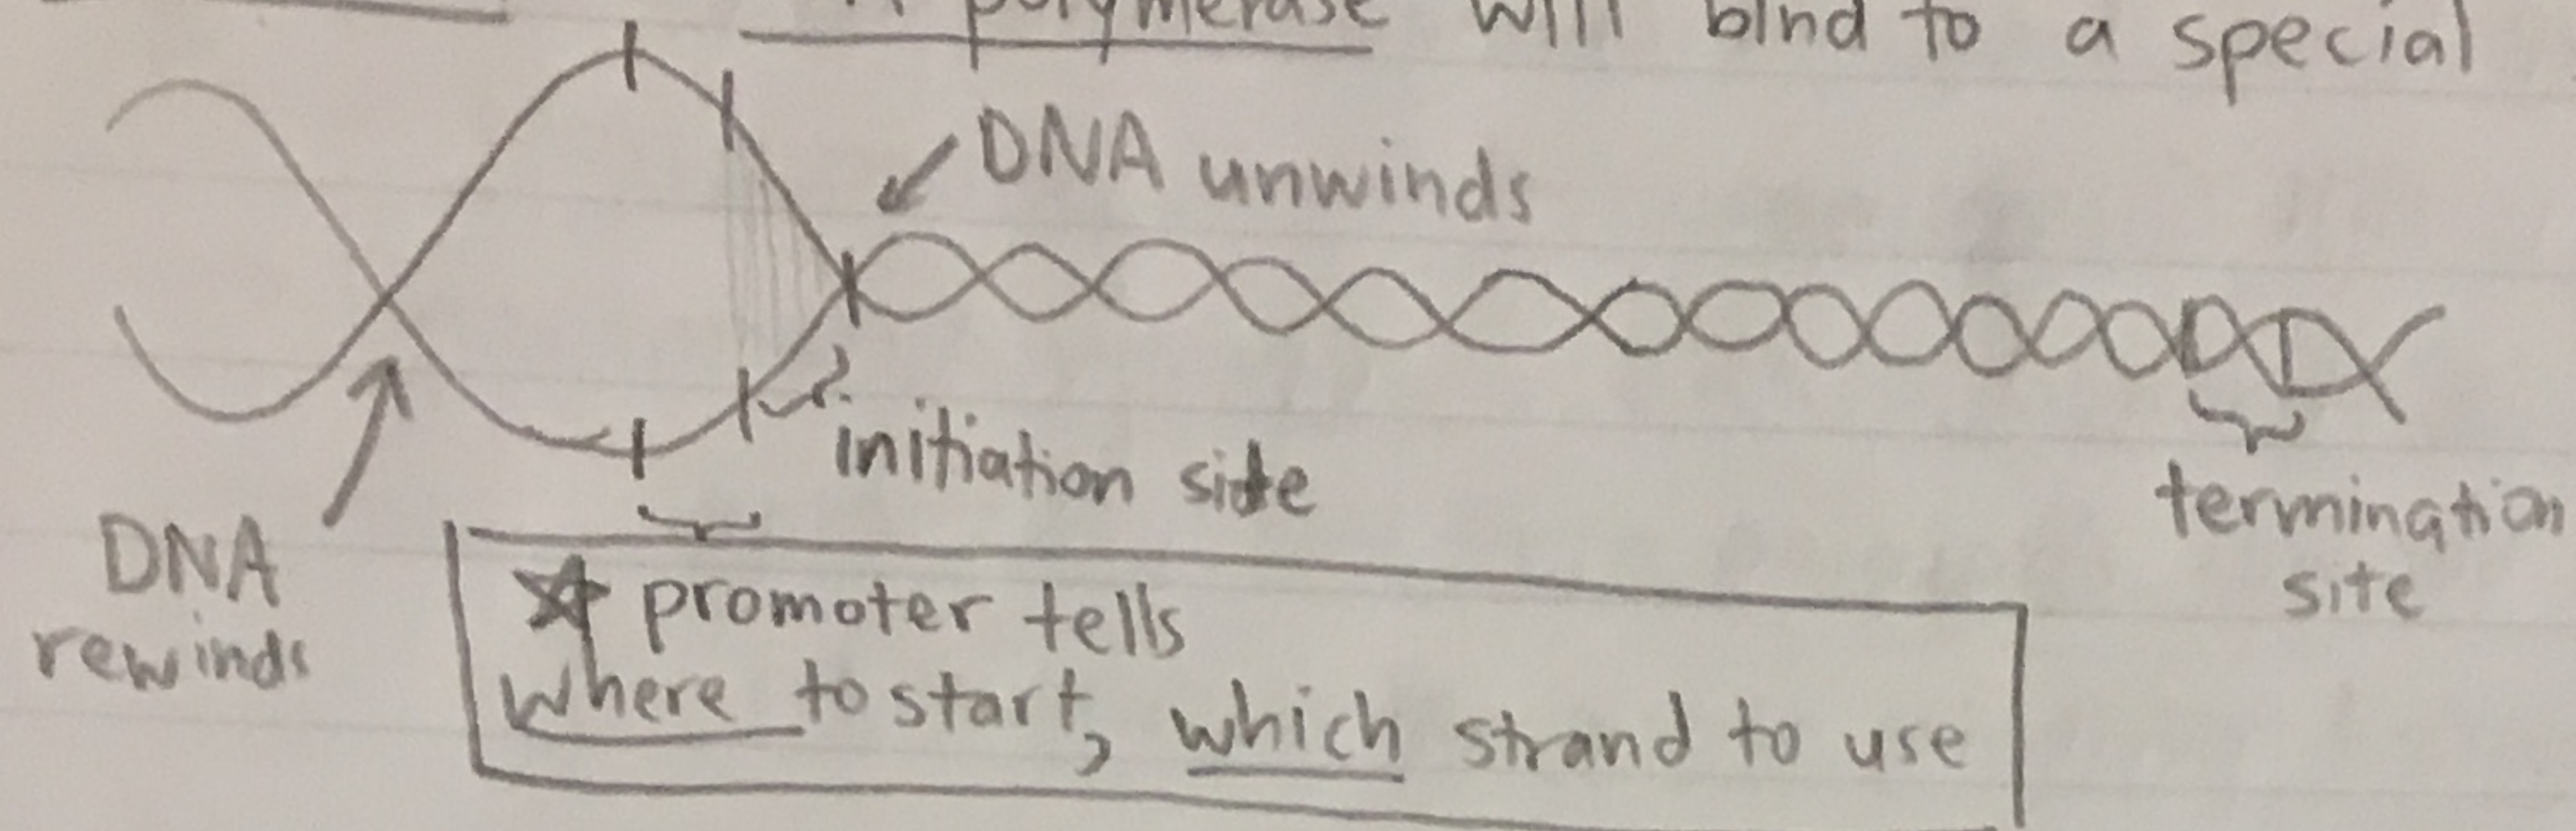 polymerase will bind to a special
DNA unwinds
initiation site
termination
site
DNA
rewinds
☆ promoter tells
where to start, which strand to use